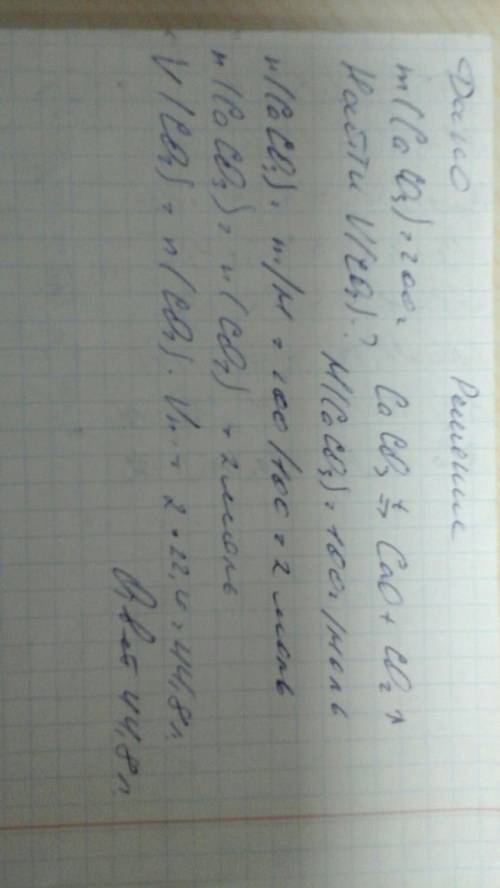 Дано Решение
m(CaCO₃)=200г CaCO₃ =t> CaO + CO₂↑
Найти V(CO₂)-? M(CaCO₃)=100г/моль
n(CaCO₃)= m/M = 200/100 = 2 моль
n(CaCO₃)= n(CO₂) = 2 моль
V(CO₂)= n(CO₂)·Vm = 2·22,4=44,8л
Ответ 44,8л